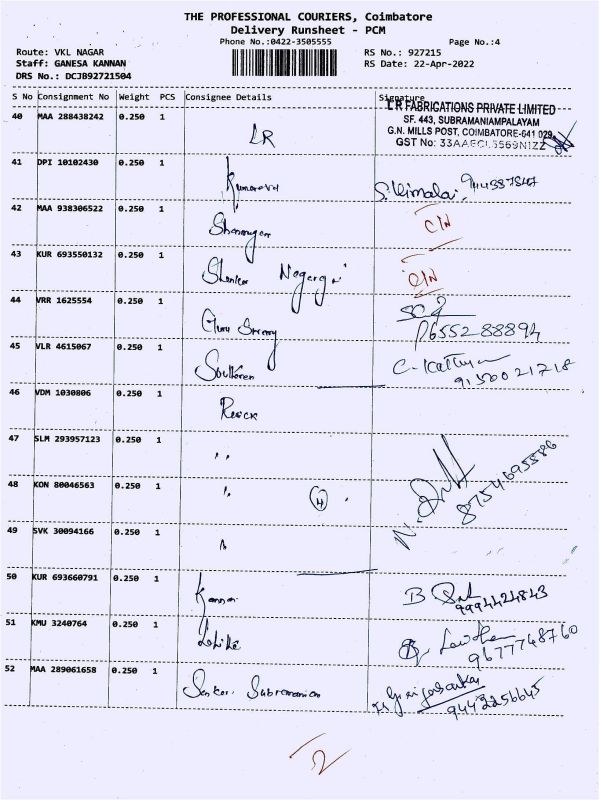 THE PROFESSIONAL COURIERS, Coimbatore
Delivery Runsheet - PCM
Phone No.:0422-3505555 Page No.:4
Route: VKL NAGAR RS No.: 927215
Staff: GANESA KANNAN RS Date: 22-Apr-2022
DRS No.: DCJB92721504
S No Consignment No Weight PCS Consignee Details Signature
L R FABRICATIONS PRIVATE LIMITED
SF. 443, SUBRAMANIAMPALAYAM
G.N. MILLS POST, COIMBATORE-641 029
GST No:
40 MAA 288438242 0.250 1 LR
41 DPI 10102430 0.250 1
42 MAA 938306522 0.250 1 C/N
43 KUR 693550132 0.250 1 Shankar C/N
44 VRR 1625554 0.250 1
45 VLR 4615067 0.250 1
46 VDM 1030806 0.250 1
47 SLM 293957123 0.250 1 ,,
48 KON 80046563 0.250 1 ,, 4 8754695586
49 SVK 30094166 0.250 1
50 KUR 693660791 0.250 1 Kannan 9994424843
51 KMU 3240764 0.250 1 9677748760
52 MAA 289061658 0.250 1 Sankar Subramanian 9442256645
2